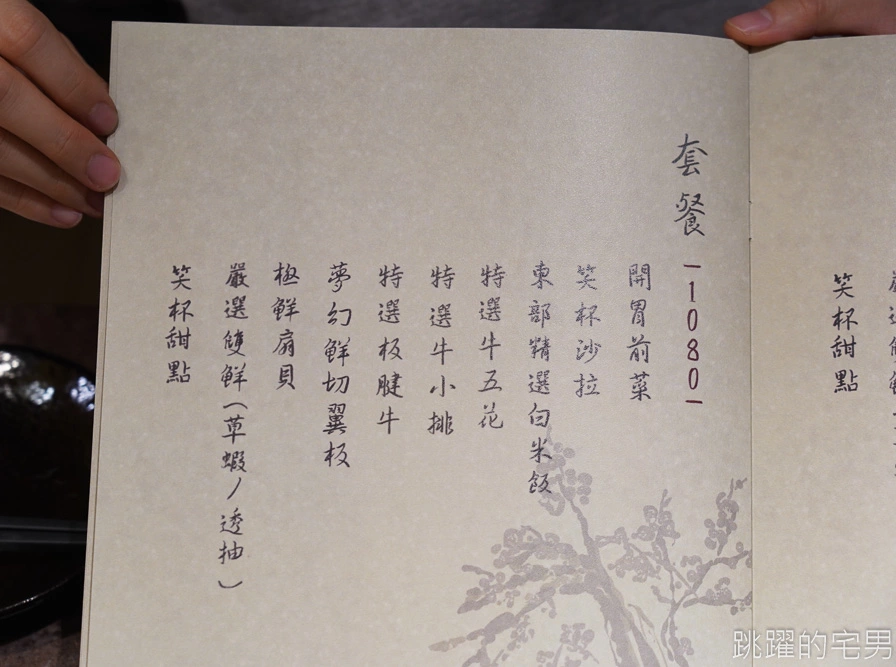 套餐 —1080—
開胃前菜
笑杯沙拉
東部精選白米飯
特選牛五花
特選牛小排
特選板腱牛
夢幻鮮切翼板
極鮮扇貝
嚴選雙鮮(草蝦/透抽)
笑杯甜點
笑杯甜點
跳躍的宅男